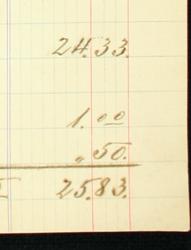 24.33.
1.00
.50.
25.83.